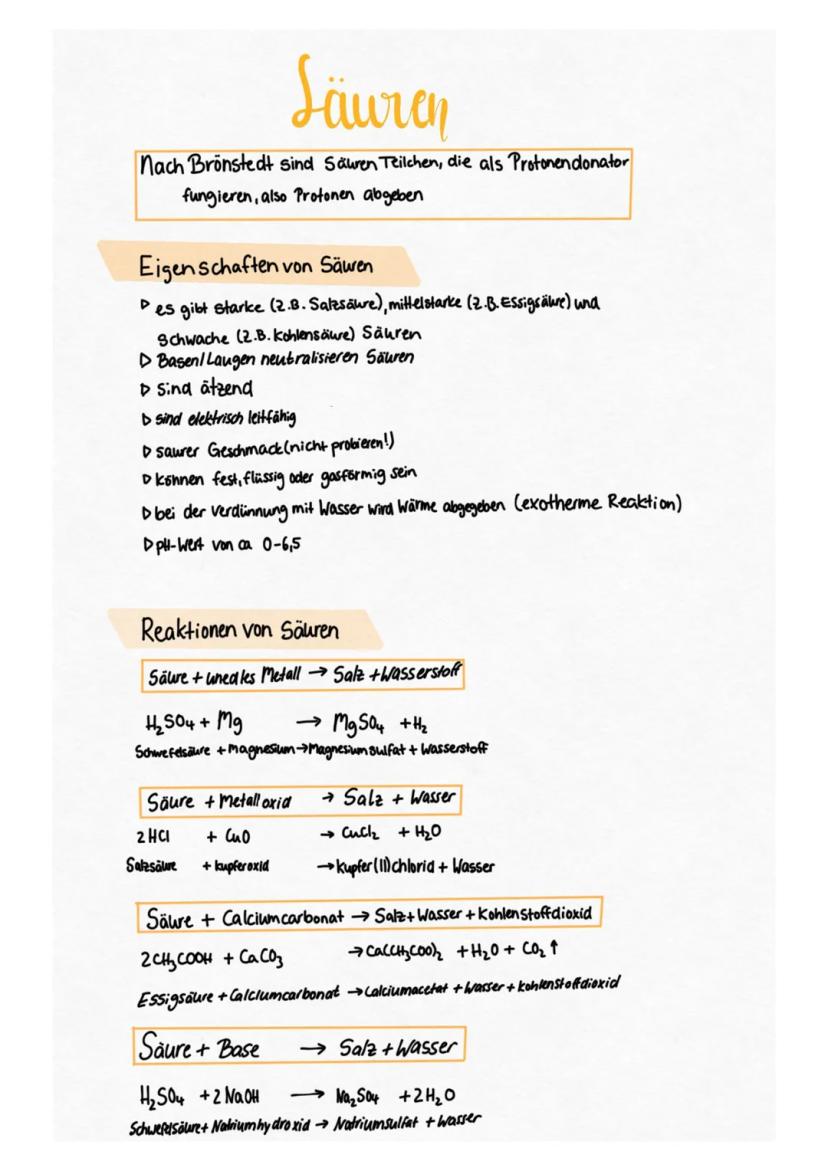 Säuren
Nach Brönstedt sind Säuren Teilchen, die als Protonendonator
fungieren, also Protonen abgeben
Eigenschaften von Säuren
▷ es gibt starke (z.B. Salzsäure), mittelstarke (z.B. Essigsäure) und
schwache (z.B. Kohlensäure) Säuren
▷ Basen/Laugen neutralisieren Säuren
▷ sind ätzend
▷ sind elektrisch leitfähig
▷ saurer Geschmack (nicht probieren!)
▷ können fest, flüssig oder gasförmig sein
▷ bei der Verdünnung mit Wasser wird Wärme abgegeben (exotherme Reaktion)
▷ pH-Wert von ca 0-6,5
Reaktionen von Säuren
Säure + unedles Metall → Salz + Wasserstoff
H₂SO₄ + Mg → MgSO₄ + H₂
Schwefelsäure + Magnesium → Magnesiumsulfat + Wasserstoff
Säure + Metalloxid → Salz + Wasser
2 HCl + CuO → CuCl₂ + H₂O
Salzsäure + Kupferoxid → Kupfer(II)chlorid + Wasser
Säure + Calciumcarbonat → Salz + Wasser + Kohlenstoffdioxid
2 CH₃COOH + CaCO₃ → Ca(CH₃COO)₂ + H₂O + CO₂ ↑
Essigsäure + Calciumcarbonat → Calciumacetat + Wasser + Kohlenstoffdioxid
Säure + Base → Salz + Wasser
H₂SO₄ + 2 NaOH → Na₂SO₄ + 2 H₂O
Schwefelsäure + Natriumhydroxid → Natriumsulfat + Wasser